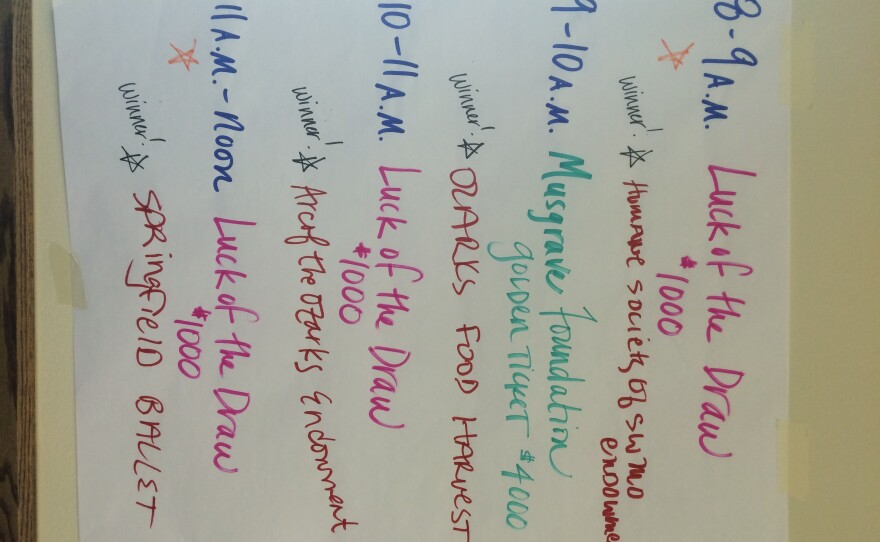 8-9 A.M. Luck of the Draw
$1000
winner! Humane Society of SWMO
endowme
9-10 A.M. Musgrave Foundation
golden Ticket $4000
winner! OZARKS FOOD HARVEST
10-11 A.M. Luck of the Draw
$1000
winner! Arc of the Ozarks Endowment
11 A.M.-Noon Luck of the Draw
$1000
winner! SPRINGFIELD BALLET